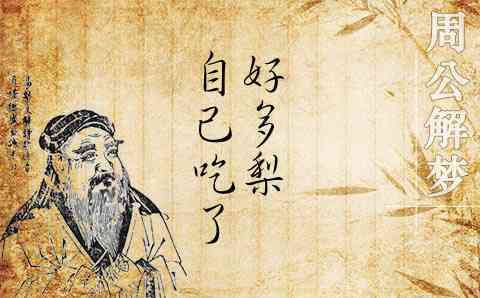 周公解梦
好多梨
自己吃了